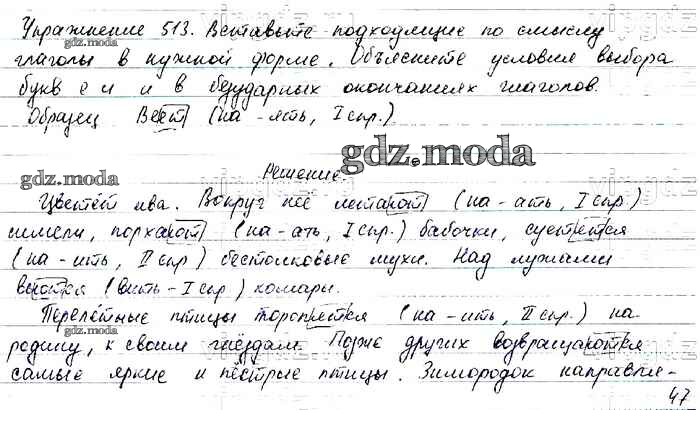 Упражнение 513. Вставьте подходящие по смыслу
глаголы в нужной форме. Объясните условия выбора
букв е и и в безударных окончаниях глаголов.
Образец. Веет (на -ять, I спр.)
Решение.
Цветёт ива. Вокруг неё летают (на -ать, I спр.)
шмели, порхают (на -ать, I спр.) бабочки, суетятся
(на -ить, II спр.) бестолковые мухи. Над лужами
вьются (вить - I спр.) комары.
Перелётные птицы торопятся (на -ить, II спр.) на
родину, к своим гнёздам. Позже других возвращаются
самые яркие и пёстрые птицы. Зимородок направля-
47
gdz.moda
gdz.moda
gdz.moda
gdz.moda
gdz.moda